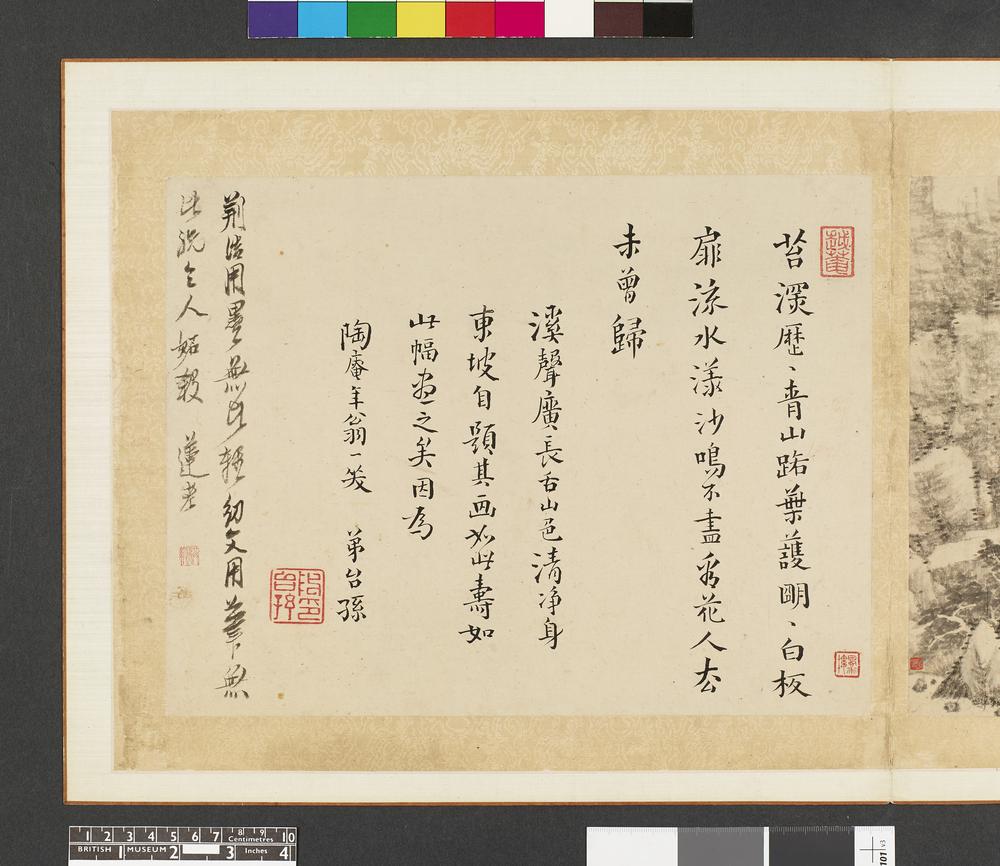 苔深歴、青山路葉護明、白板
扉流水漾沙鳴不盡看花人去
未曾歸
溪聲廣長舌山色清净身
東坡自題其画如此壽如
此幅画之矣因為
陶庵年翁一笑 弟台孫
荆浩用墨無此輕幼文用筆無
此人
蓮老
1 2 3 4 5 6 7 8 9 10
Centimetres
BRITISH 1 MUSEUM 2 3 Inches 4